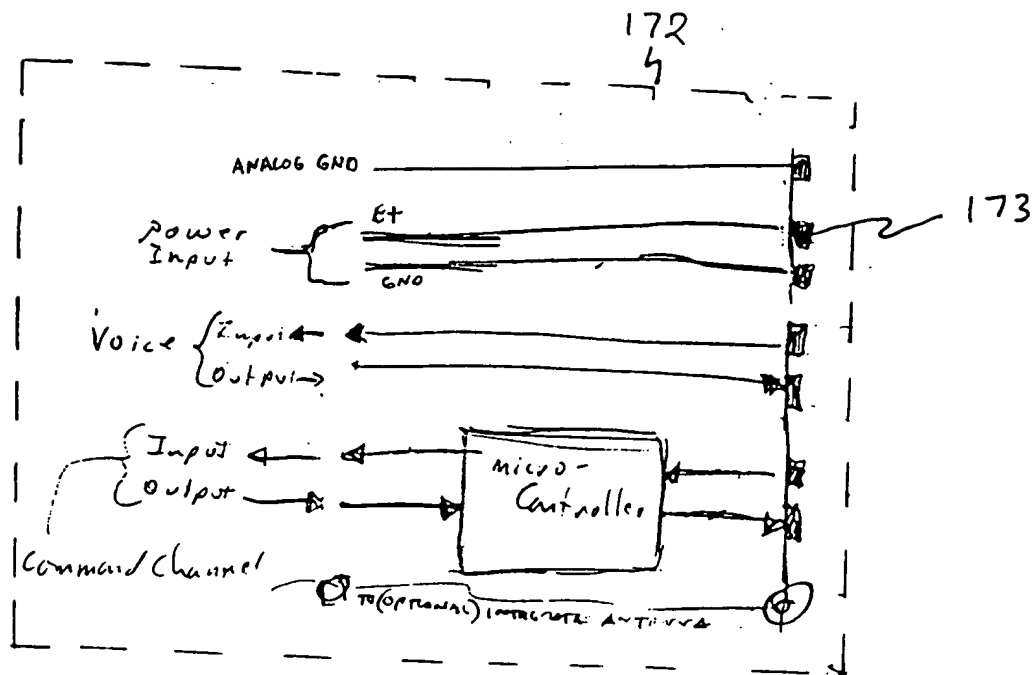 172
ANALOG GND
173
Power
Input
E+
GND
Voice
Input
Output
Input
Output
Micro-
Controller
Command Channel
TO (OPTIONAL) INTEGRATE ANTENNA